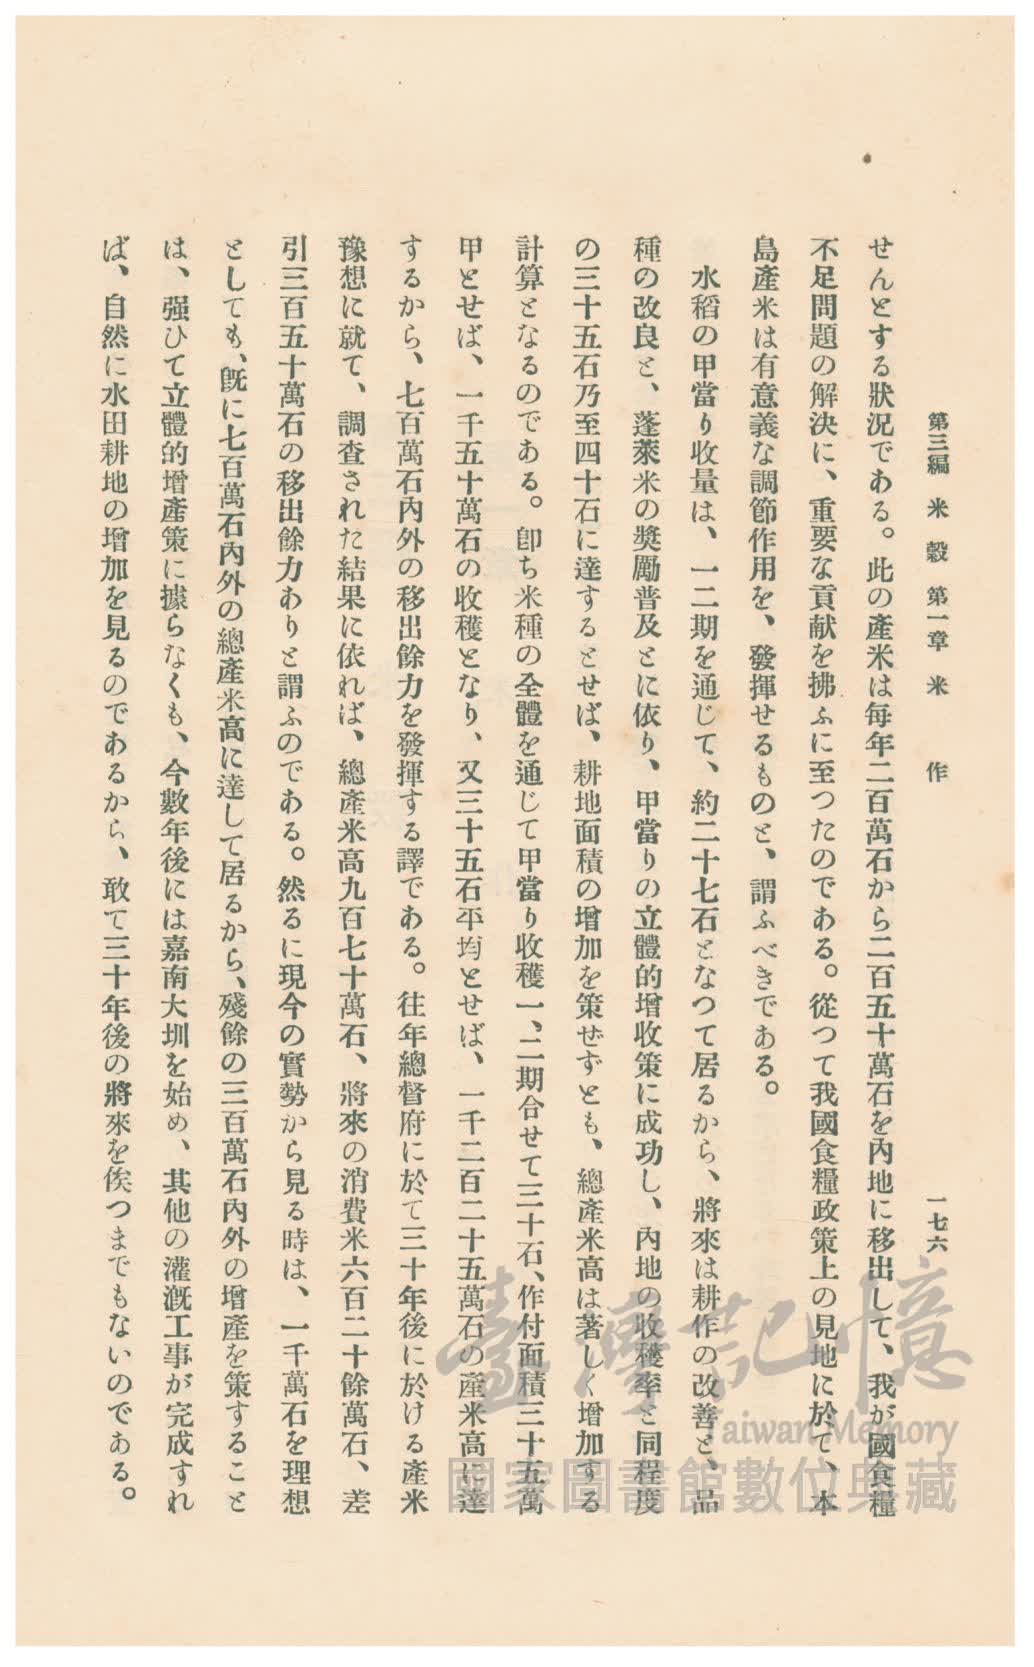 第三編 米穀 第一章 米作
一七六
せんとする狀況である。此の產米は每年二百萬石から二百五十萬石を內地に移出して、我が國食糧
不足問題の解決に、重要な貢献を拂ふに至つたのである。從つて我國食糧政策上の見地に於て、本
島產米は有意義な調節作用を、發揮せるものと、謂ふべきである。
水稻の甲當り收量は、一二期を通じて、約二十七石となつて居るから、將來は耕作の改善と、品
種の改良と、蓬萊米の獎勵普及とに依り、甲當りの立體的增收策に成功し、內地の收穫率と同程度
の三十五石乃至四十石に達するとせば、耕地面積の增加を策せずとも、總產米高は著しく增加する
計算となるのである。卽ち米種の全體を通じて甲當り收穫一、二期合せて三十石、作付面積三十五萬
甲とせば、一千五十萬石の收穫となり、又三十五石平均とせば、一千二百二十五萬石の產米高に達
するから、七百萬石內外の移出餘力を發揮する譯である。往年總督府に於て三十年後に於ける產米
豫想に就て、調查された結果に依れば、總產米高九百七十萬石、將來の消費米六百二十餘萬石、差
引三百五十萬石の移出餘力ありと謂ふのである。然るに現今の實勢から見る時は、一千萬石を理想
としても、旣に七百萬石內外の總產米高に達して居るから、殘餘の三百萬石內外の增產を策すること
は、强ひて立體的增產策に據らなくも、今數年後には嘉南大圳を始め、其他の灌漑工事が完成すれ
ば、自然に水田耕地の增加を見るのであるから、敢て三十年後の將來を俟つまでもないのである。
臺灣記憶
Taiwan Memory
國家圖書館數位典藏